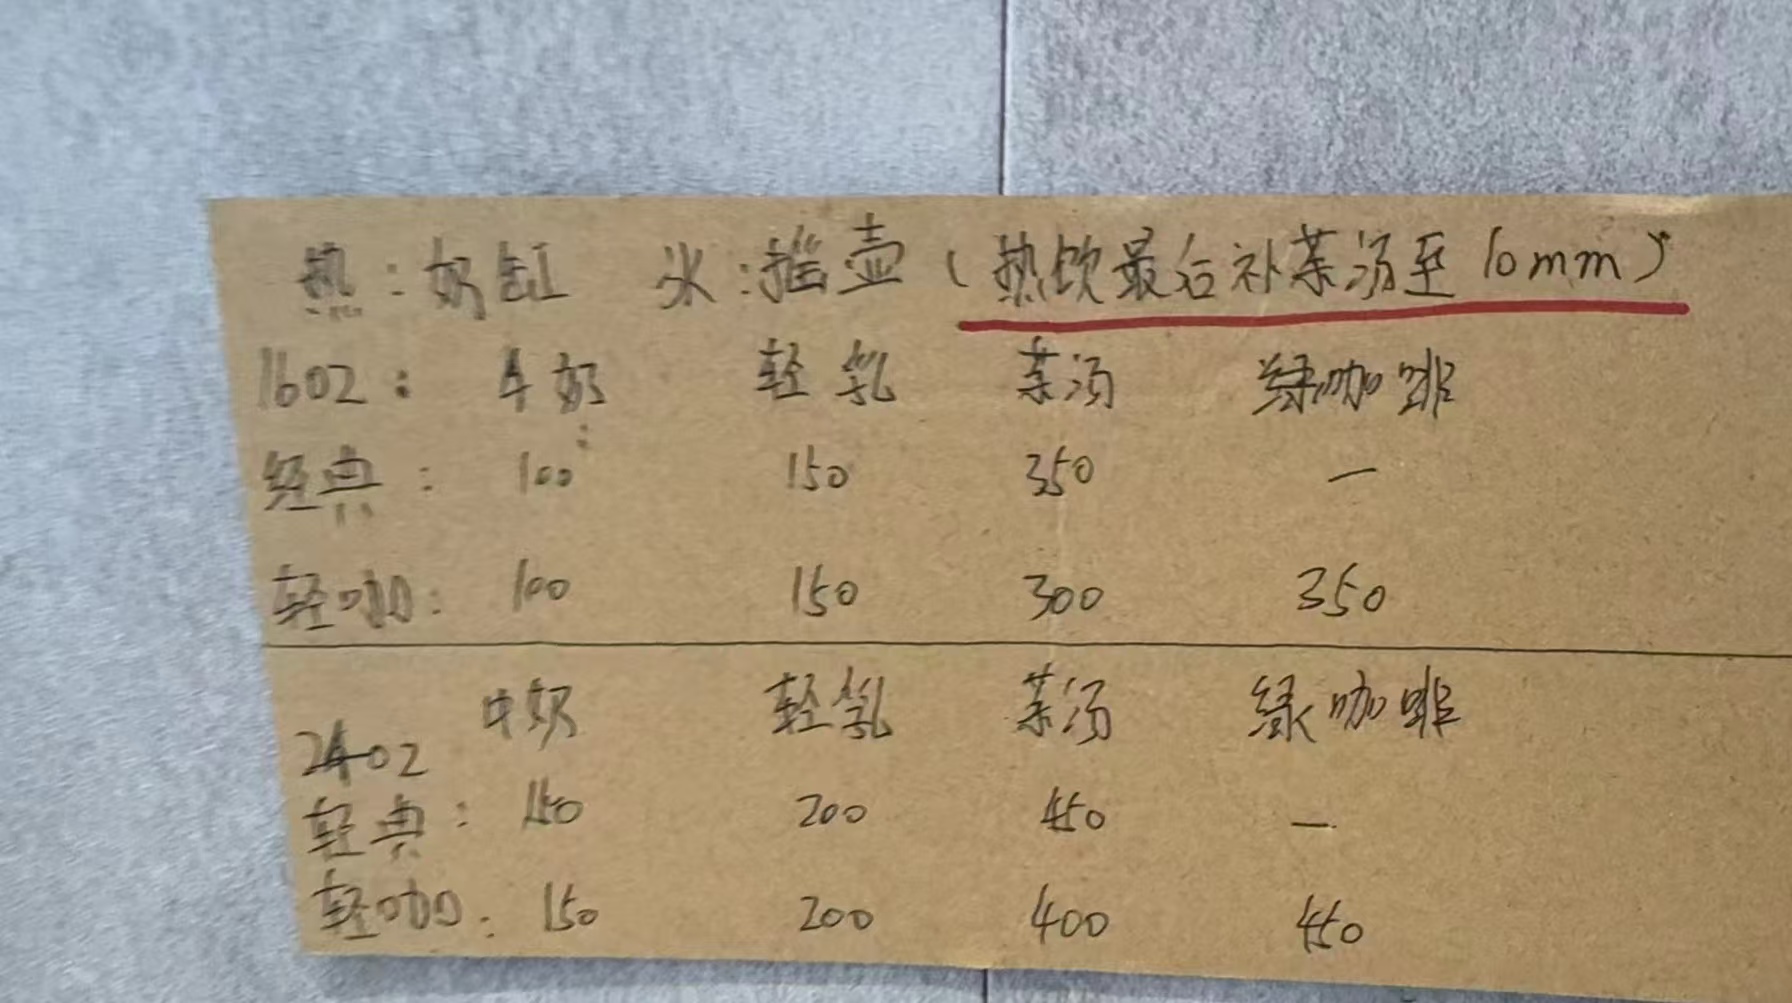 热：奶缸 冰：摇壶（热饮最后补茶汤至10mm）
16oz： 牛奶 轻乳 茶汤 绿咖啡
经典： 100 150 350 —
轻咖： 100 150 300 350
牛奶 轻乳 茶汤 绿咖啡
24oz
轻典： 150 200 450 —
轻咖： 150 200 400 450